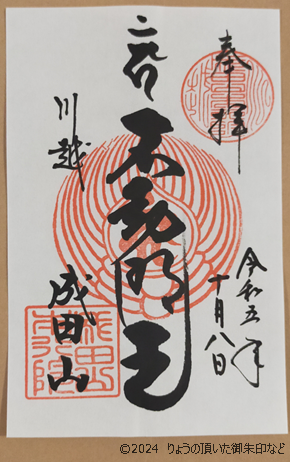 奉拝
令和五年
十月八日
不動明王
川越
成田山
©2024 りょうの頂いた御朱印など